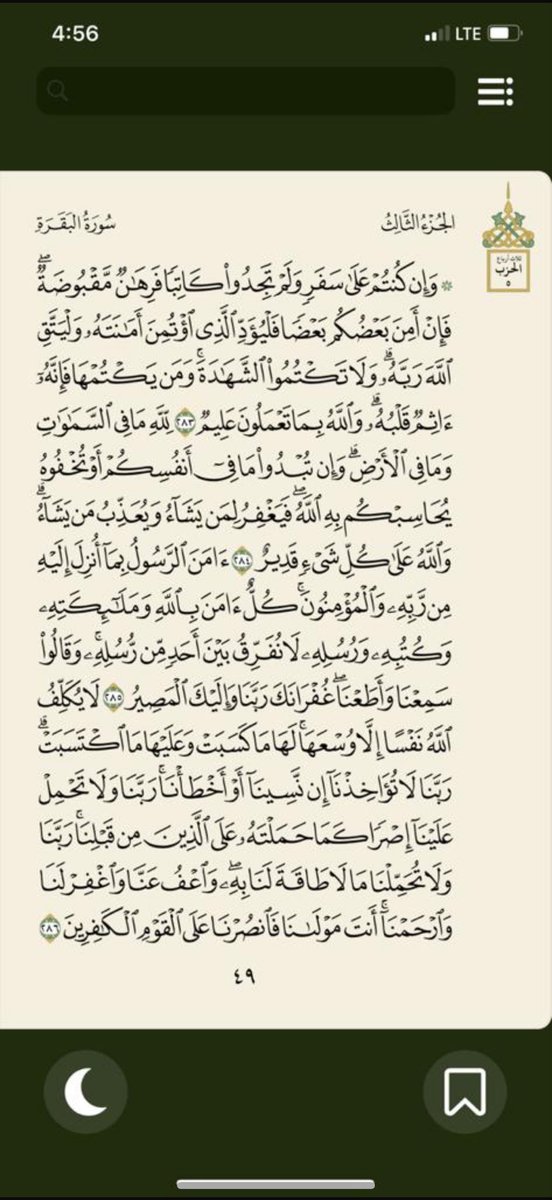 4:56
LTE
الجُزْءُ الثَّالِثُ
سُورَةُ البَقَرَةِ
ثلاثة أرباع
الحزب
٥
۞ وَإِن كُنتُمْ عَلَىٰ سَفَرٍ وَلَمْ تَجِدُوا۟ كَاتِبًا فَرِهَـٰنٌ مَّقْبُوضَةٌ ۖ
فَإِنْ أَمِنَ بَعْضُكُم بَعْضًا فَلْيُؤَدِّ ٱلَّذِى ٱؤْتُمِنَ أَمَـٰنَتَهُۥ وَلْيَتَّقِ
ٱللَّهَ رَبَّهُۥ ۗ وَلَا تَكْتُمُوا۟ ٱلشَّهَـٰدَةَ ۚ وَمَن يَكْتُمْهَا فَإِنَّهُۥٓ
ءَاثِمٌ قَلْبُهُۥ ۗ وَٱللَّهُ بِمَا تَعْمَلُونَ عَلِيمٌ ٢٨٣ لِّلَّهِ مَا فِى ٱلسَّمَـٰوَٰتِ
وَمَا فِى ٱلْأَرْضِ ۗ وَإِن تُبْدُوا۟ مَا فِىٓ أَنفُسِكُمْ أَوْ تُخْفُوهُ
يُحَاسِبْكُم بِهِ ٱللَّهُ ۖ فَيَغْفِرُ لِمَن يَشَآءُ وَيُعَذِّبُ مَن يَشَآءُ ۗ
وَٱللَّهُ عَلَىٰ كُلِّ شَىْءٍ قَدِيرٌ ٢٨٤ ءَامَنَ ٱلرَّسُولُ بِمَآ أُنزِلَ إِلَيْهِ
مِن رَّبِّهِۦ وَٱلْمُؤْمِنُونَ ۚ كُلٌّ ءَامَنَ بِٱللَّهِ وَمَلَـٰٓئِكَتِهِۦ
وَكُتُبِهِۦ وَرُسُلِهِۦ لَا نُفَرِّقُ بَيْنَ أَحَدٍ مِّن رُّسُلِهِۦ ۚ وَقَالُوا۟
سَمِعْنَا وَأَطَعْنَا ۖ غُفْرَانَكَ رَبَّنَا وَإِلَيْكَ ٱلْمَصِيرُ ٢٨٥ لَا يُكَلِّفُ
ٱللَّهُ نَفْسًا إِلَّا وُسْعَهَا ۚ لَهَا مَا كَسَبَتْ وَعَلَيْهَا مَا ٱكْتَسَبَتْ ۗ
رَبَّنَا لَا تُؤَاخِذْنَآ إِن نَّسِينَآ أَوْ أَخْطَأْنَا ۚ رَبَّنَا وَلَا تَحْمِلْ
عَلَيْنَآ إِصْرًا كَمَا حَمَلْتَهُۥ عَلَى ٱلَّذِينَ مِن قَبْلِنَا ۚ رَبَّنَا
وَلَا تُحَمِّلْنَا مَا لَا طَاقَةَ لَنَا بِهِۦ ۖ وَٱعْفُ عَنَّا وَٱغْفِرْ لَنَا
وَٱرْحَمْنَآ ۚ أَنتَ مَوْلَىٰنَا فَٱنصُرْنَا عَلَى ٱلْقَوْمِ ٱلْكَـٰفِرِينَ ٢٨٦
٤٩